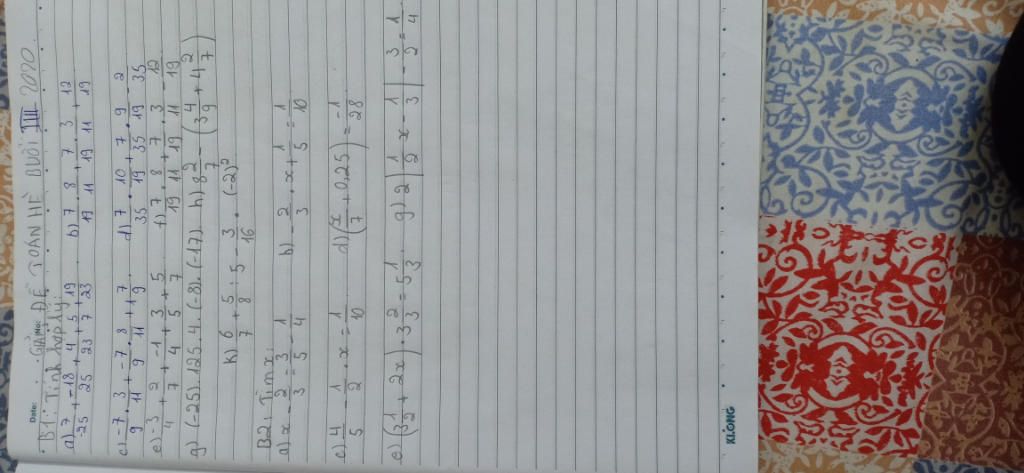 Date: No:
GIẢI ĐỀ TOÁN HÈ BUỔI III 2020
B1: Tính hợp lý:
a) 7/-25 + -18/25 + 4/23 + 5/7 + 19/23 b) 7/19 . 8/11 + 7/19 . 3/11 + 12/19
c) -7/9 . 3/11 + -7/9 . 8/11 + 1 7/9 d) 7/35 . 10/19 + 7/35 . 9/19 - 2/35
e) -3/4 + 2/7 + -1/4 + 3/5 + 5/7 f) 7/19 . 8/11 + 7/19 . 3/11 - 12/19
g) (-25).125.4.(-8).(-17). h) 8 2/7 - (3 4/9 + 4 2/7)
k) 6/7 + 5/8 : 5 - 3/16 . (-2)²
B2: Tìm x:
a) x - 2/3 = 3/5 - 1/4 b) - 2/3 . x + 1/5 = 1/10
c) 4/5 - 1/2 . x = 1/10 d) (x/7 + 0,25) = -1/28
e) (3 1/2 + 2x) . 3 2/3 = 5 1/3 g) 2 | 1/2 x - 1/3 | - 3/2 = 1/4
KLONG